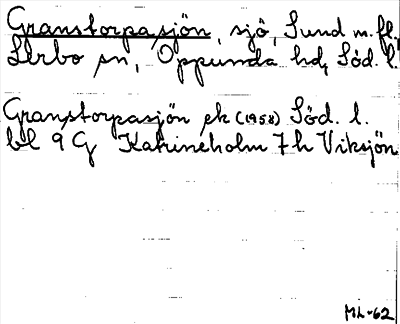 Granstorpasjön, sjö, Sund m.fl.,
Lerbo sn, Oppunda hd, Söd. l.
Granstorpasjön ek (1958) Söd. l.
bl 9 G Katrineholm 7 h Viksjön
ML-62